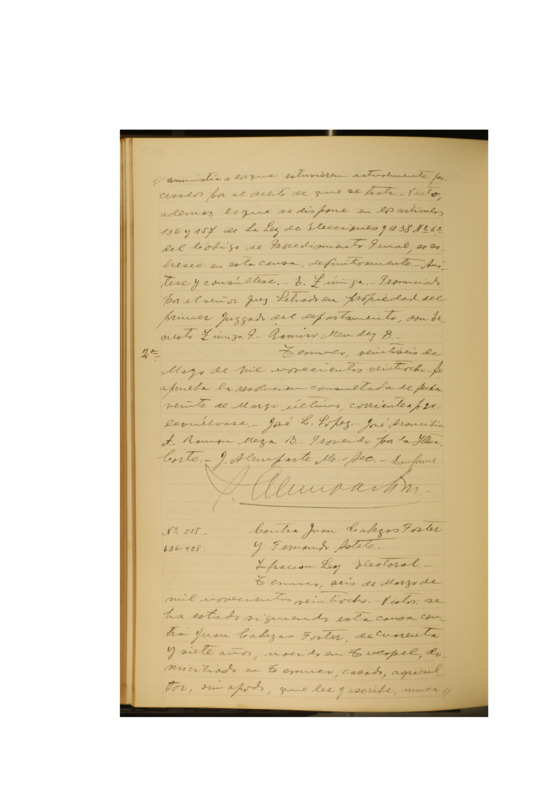 amnistía a los que estuvieren actualmente pro-
cesados por el delito de que se trata.- Visto,
ademas lo que se dispone en los artículos
136 y 157 de la Ley de Elecciones y 438 Nº 6º
del Código de Procedimiento Penal, se so-
bresee en esta causa, definitivamente.- Anó-
tese y consúltese.- E. Zúñiga.- Pronunciado
por el señor Juez Letrado en propiedad del
primer Juzgado del departamento, don Er-
nesto Zúñiga P.- Ramiro Mendez B.-
2ª.- Temuco, veintiseis de
Mayo de mil novecientos veintiocho.- Se
aprueba la resolucion consultada de fecha
veinte de Marzo último, corriente a fs.
Devuélvase.- José L. Lopez.- José Arancibia
A. Roman Meza B.- Proveido por la Iltma.
Corte.- J. Alemparte M.- Sec.- Conforme
J. Alemparte M.-
Nº 555.- Contra Juan Cabezas Foster
y Fernando Sotelo.-
Infraccion Ley Electoral.-
Temuco, seis de Marzo de
mil novecientos veintiocho.- Vistos: se
ha estado siguiendo esta causa con-
tra Juan Cabezas Foster, de cuarenta
y siete años, nacido en Tucapel, do-
miciliado en Temuco, casado, agricul-
tor, sin apodo, que lee y escribe, nunca